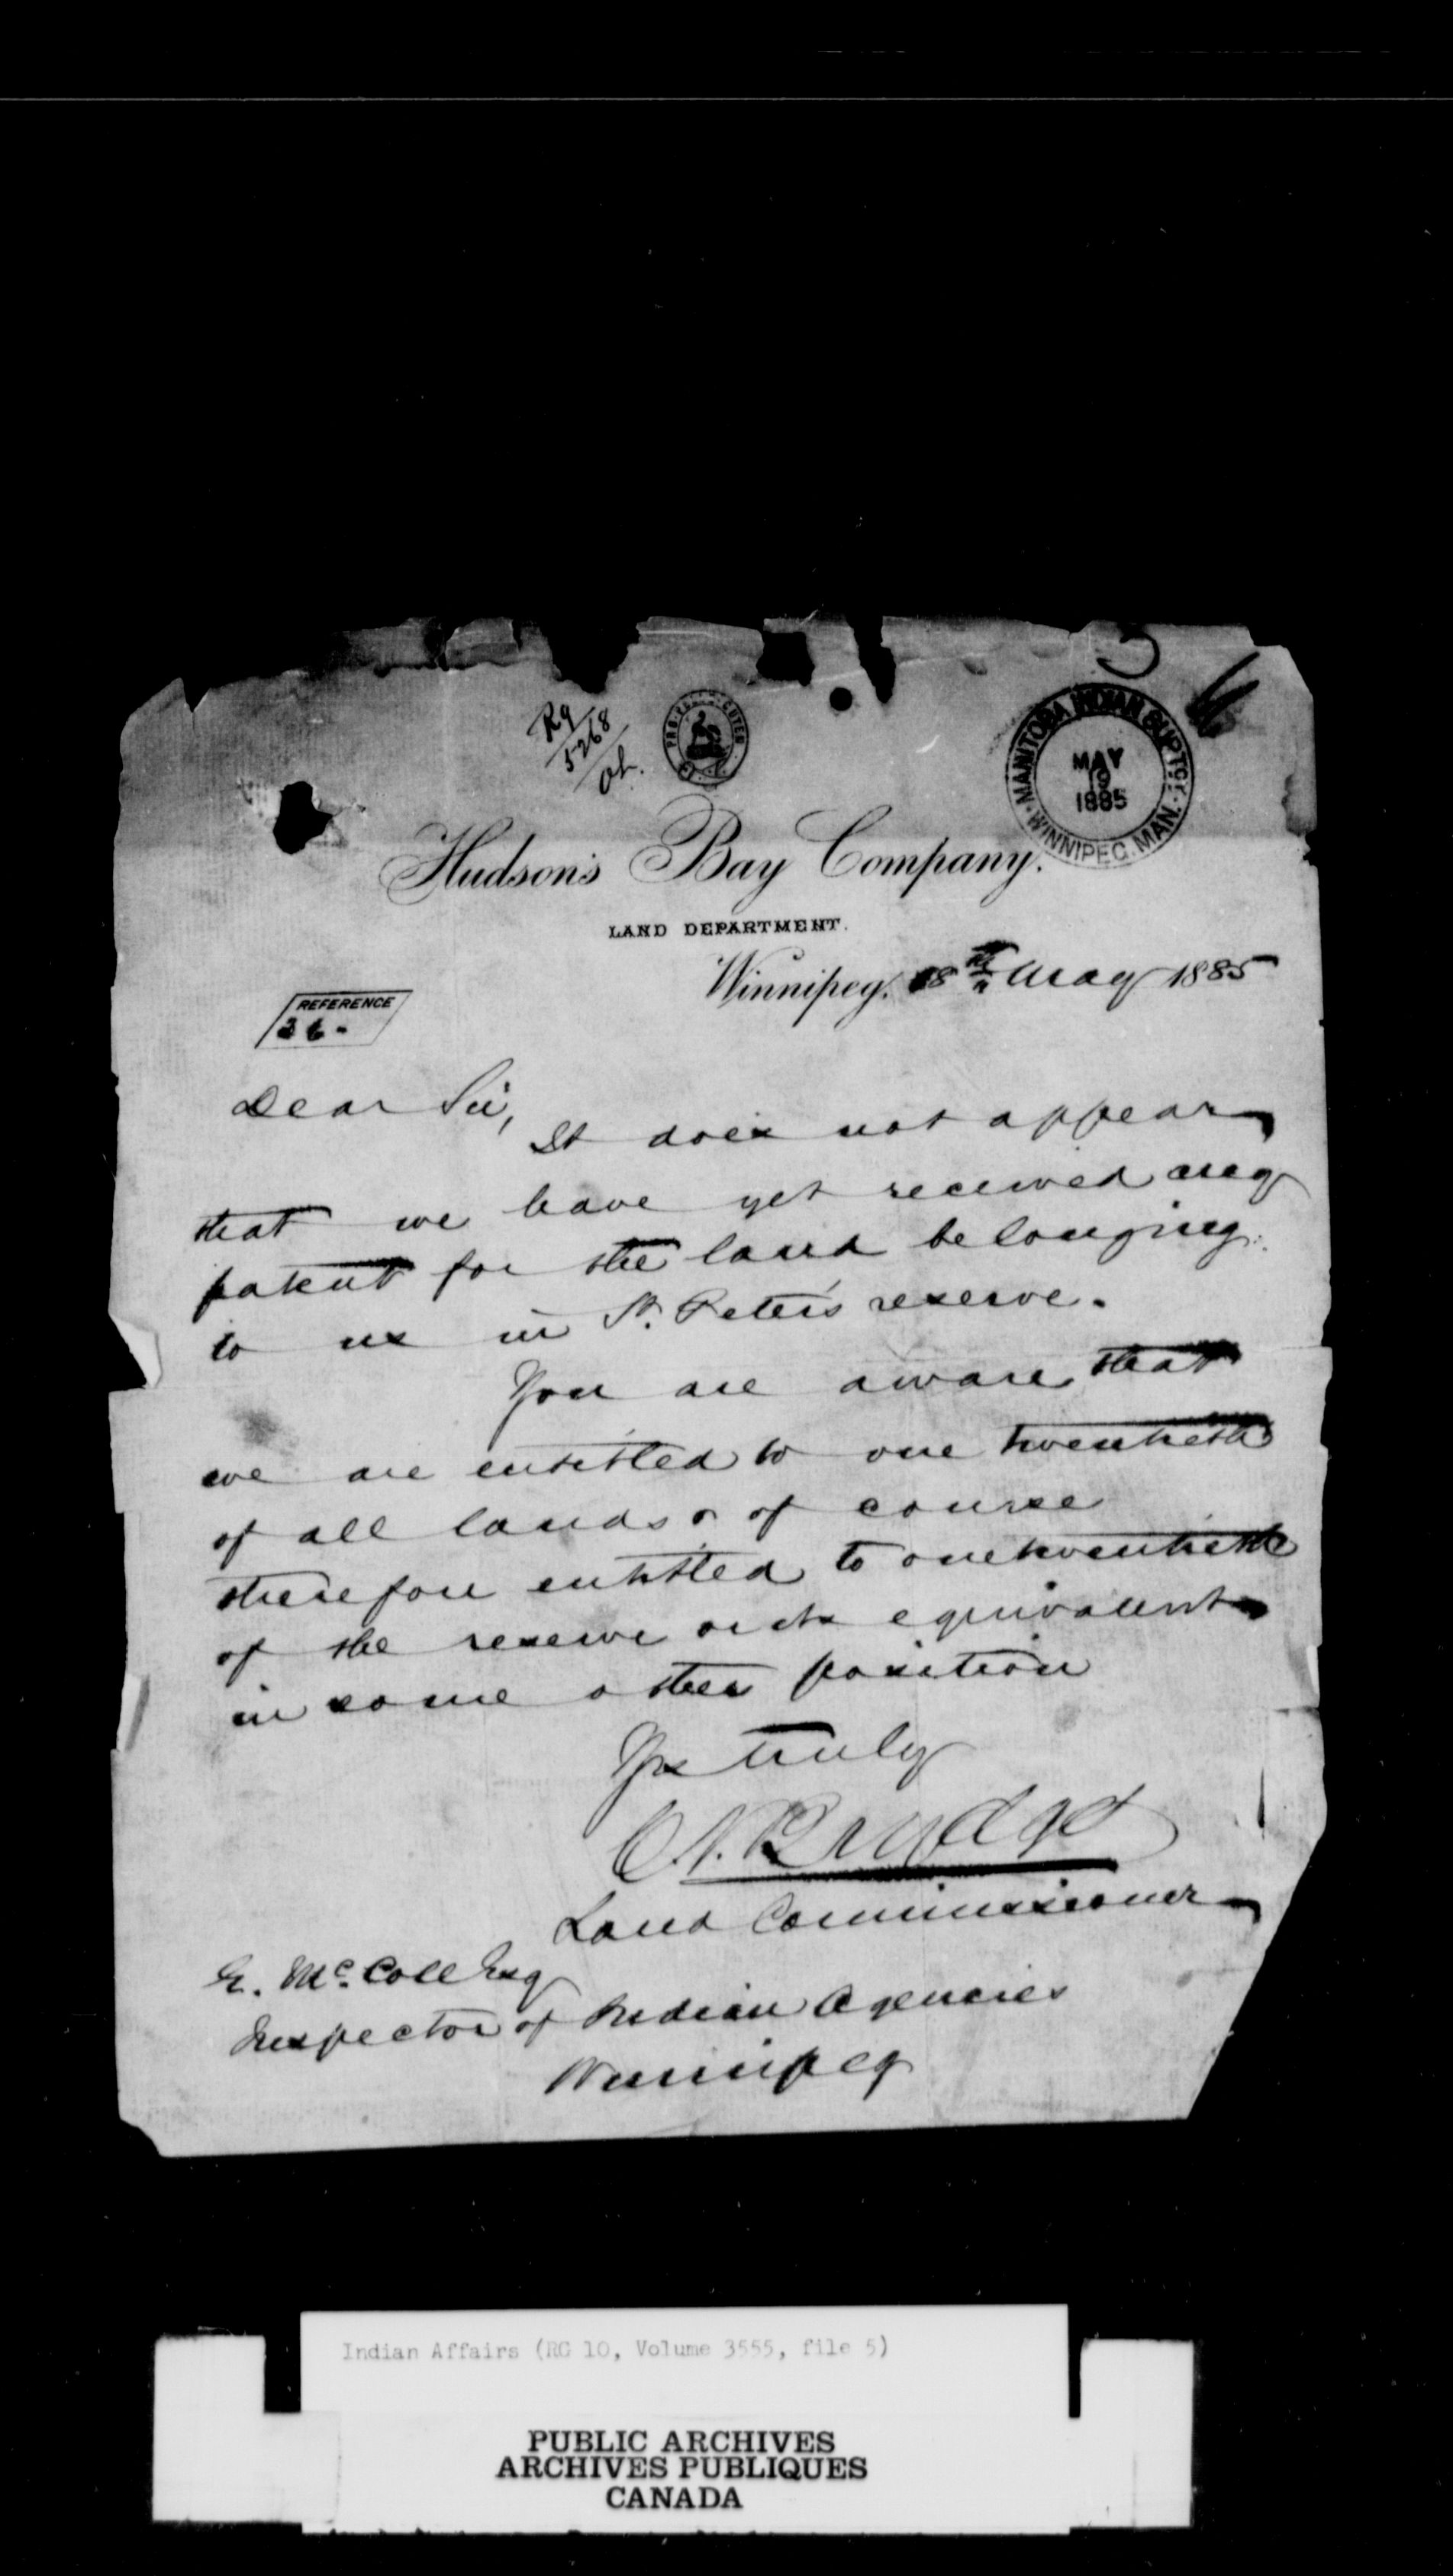 Rg
5268
PRO PELLE CUTEM
MANITOBA INDIAN SUPTCY.
MAY
19
1885
WINNIPEG. MAN.
Hudson's Bay Company.
LAND DEPARTMENT.
Winnipeg, 18th May 1885
REFERENCE
36.
Dear Sir,
It does not appear
that we have yet received any
patent for the land belonging
to us in St. Peter's reserve.
You are aware that
we are entitled to one twentieth
of all lands & of course
therefore entitled to one twentieth
of the reserve or its equivalent
in some other position
Yrs truly
C. J. Brydges
Land Commissioner
E. McColl Esq
Inspector of Indian Agencies
Winnipeg
Indian Affairs (RG 10, Volume 3555, file 5)
PUBLIC ARCHIVES
ARCHIVES PUBLIQUES
CANADA